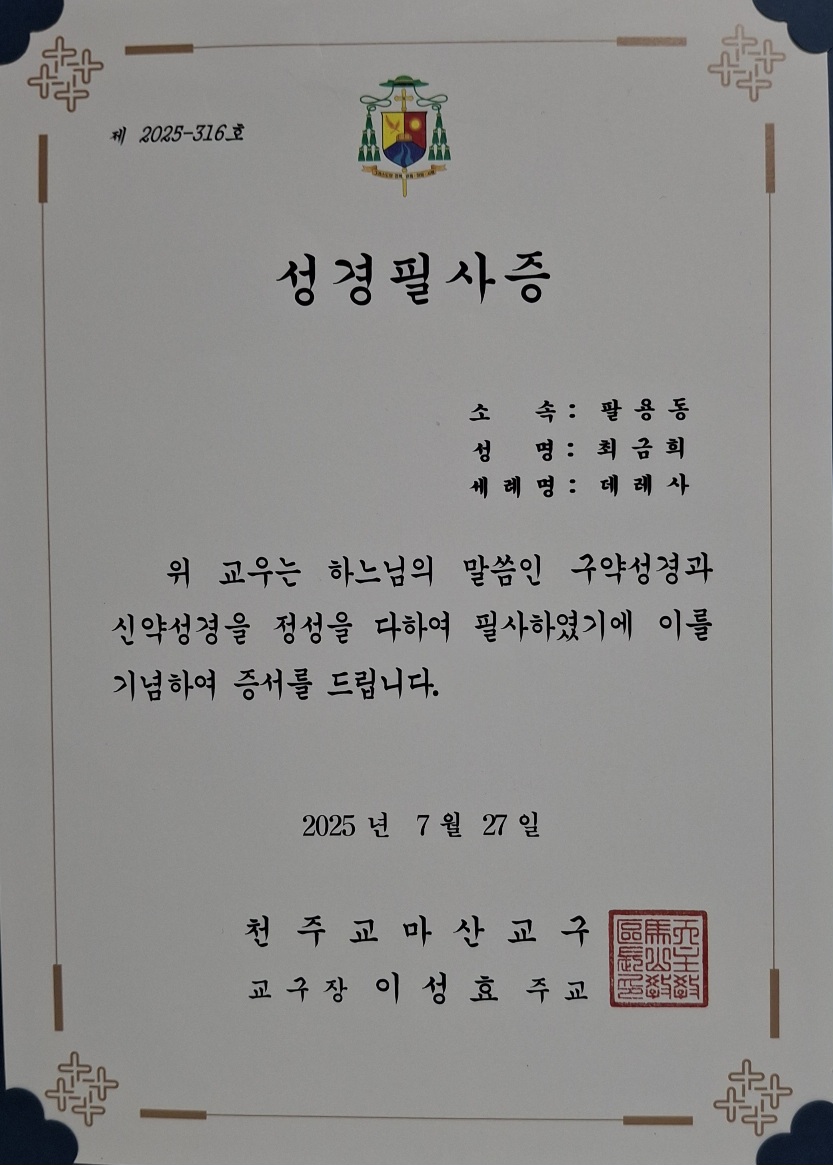 제 2025-316호
성경필사증
소 속 : 팔용동
성 명 : 최금희
세례명 : 데레사
위 교우는 하느님의 말씀인 구약성경과
신약성경을 정성을 다하여 필사하였기에 이를
기념하여 증서를 드립니다.
2025 년 7 월 27 일
천주교마산교구
교구장 이성효 주교
天主敎
馬山敎
區長印